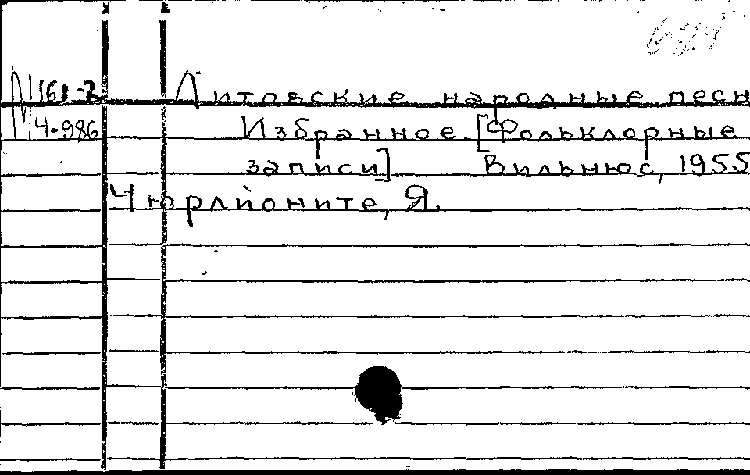 М 161-2 Литовские народные песн
Ч-986 Избранное. [Фольклорные
записи] Вильнюс, 1955
Чюрлйоните, Я.